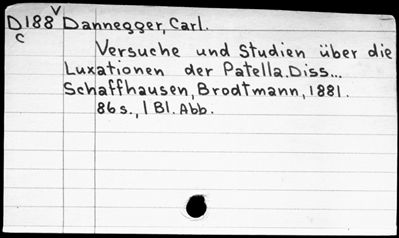 D188 V Dannegger, Carl.
C
Versuche und Studien über die
Luxationen der Patella. Diss...
Schaffhausen, Brodtmann, 1881.
86 s., 1 Bl. Abb.